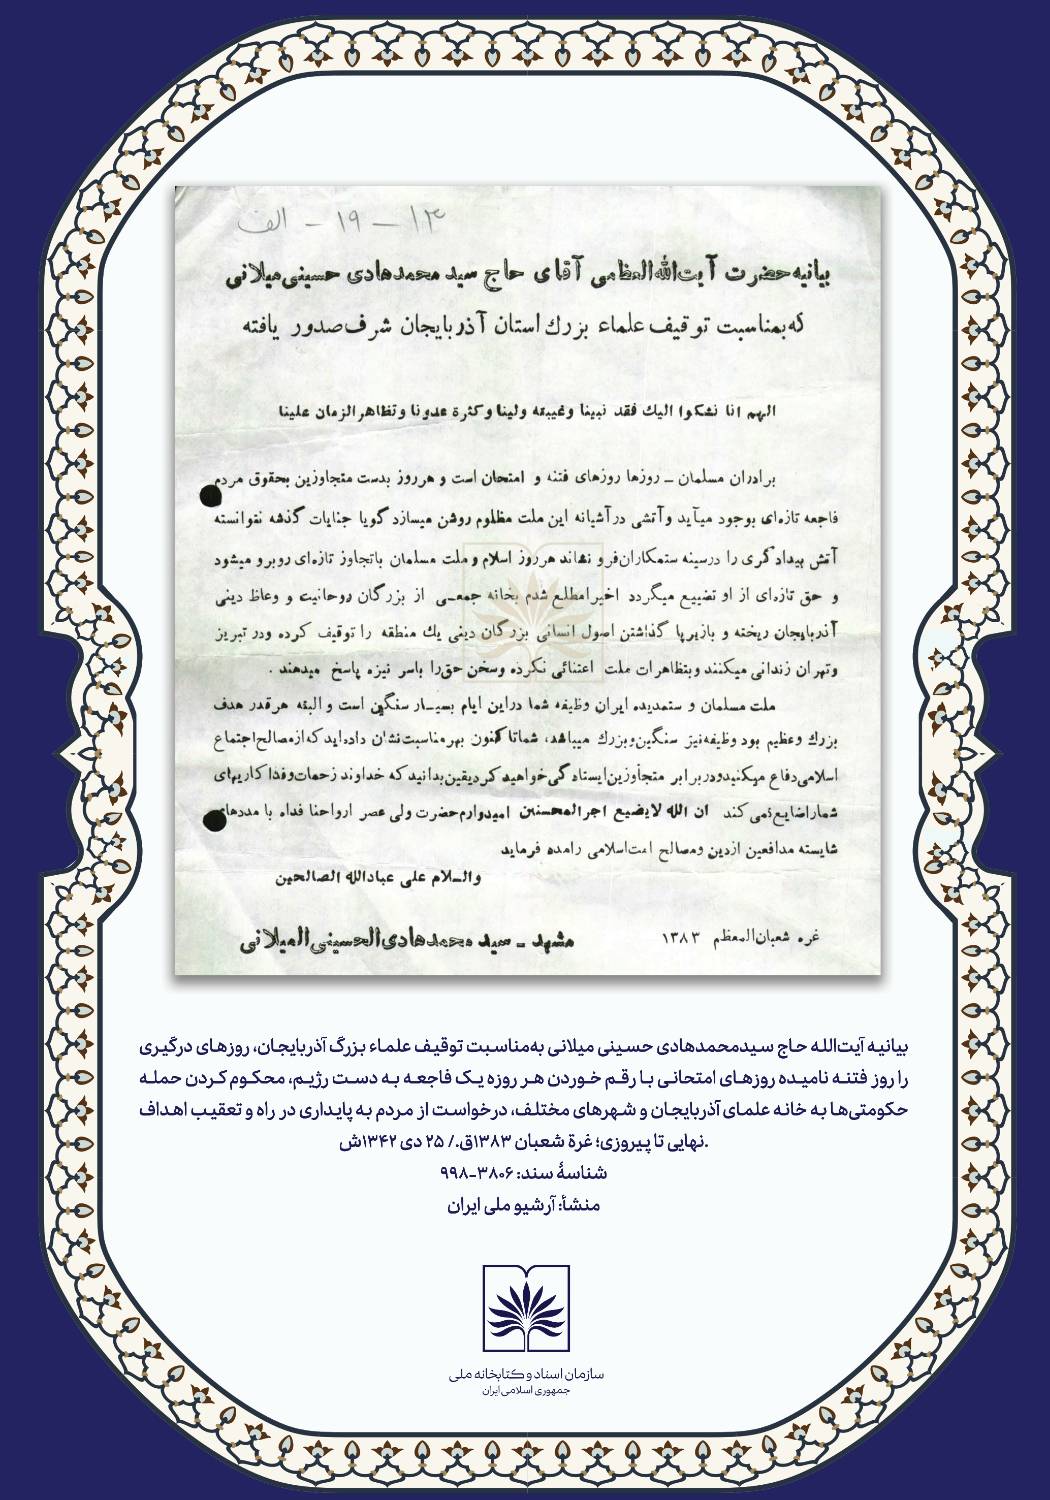 ۱۳ - ۱۹ - الف
بیانیه حضرت آیت‌الله‌العظامی آقای حاج سید محمدهادی حسینی میلانی
که بمناسبت توقیف علماء بزرك استان آذربایجان شرف صدور یافته
الهم انا نشکوا الیك فقد نبینا وغیبته ولینا وکثرة عدونا وتظاهرالزمان علینا
برادران مسلمان ـ روزها روزهای فتنه و امتحان است و هرروز بدست متجاوزین بحقوق مردم
فاجعه تازه‌ای بوجود میآید وآتشی درآشیانه این ملت مظلوم روشن میسازد گویا جنایات گذشه نتوانسته
آتش بیدادگری را درسینه ستمکاران فرو نشاند هرروز اسلام وملت مسلمان باتجاوز تازه‌ای روبرو میشود
و حق تازه‌ای از او تضییع میگردد اخیرامطلع شدم بخانه جمعـی از بزرگان روحانیت و وعاظ دینی
آذربایجان ریخته و بازیرپا گذاشتن اصول انسانی بزرگان دینی یك منطقه را توقیف کرده ودر تبریز
وتهران زندانی میکنند وبتظاهرات ملت اعتنائی نکرده وسخن حق‌را باسر نیزه پاسخ میدهند .
ملت مسلمان و ستمدیده ایران وظیفه شما دراین ایام بسیـار سنگین است و البته هرقدر هدف
بزرك وعظیم بود وظیفه‌نیز سنگین‌وبزرك میباشد، شماتاکنون بهرمناسبت‌نشان داده‌اید که‌ازمصالح‌اجتماع
اسلامی‌دفاع میکنیدودربرابر متجاوزین‌ایستاده گی‌خواهید کردیقین‌بدانیدکه خداوند زحمات‌وفداکاریهای
شماراضایع‌نمی کند ان الله لایضیع اجرالمحسنین امیدوارم‌حضرت ولی عصر ارواحنا فداه با مددهای
شایسته مدافعین ازدین ومصالح امت‌اسلامی رامده فرماید
والـلام علی عبادالله الصالحین
غره شعبان‌المعظم ۱۳۸۳
مشهد ـ سید محمدهادی‌الحسینی‌المیلانی
بیانیه آیت‌الله حاج سیدمحمدهادی حسینی میلانی به‌مناسبت توقیف علماء بزرگ آذربایجان، روزهای درگیری
را روز فتنه نامیده روزهای امتحانی با رقم خوردن هر روزه یک فاجعه به دست رژیم، محکوم کردن حمله
حکومتی‌ها به خانه علمای آذربایجان و شهرهای مختلف، درخواست از مردم به پایداری در راه و تعقیب اهداف
.نهایی تا پیروزی؛ غرة شعبان ۱۳۸۳ق./ ۲۵ دی ۱۳۴۲ش
شناسهٔ سند: ۳۸۰۶-۹۹۸
منشأ: آرشیو ملی ایران
سازمان اسناد و کتابخانه ملی
جمهوری اسلامی ایران